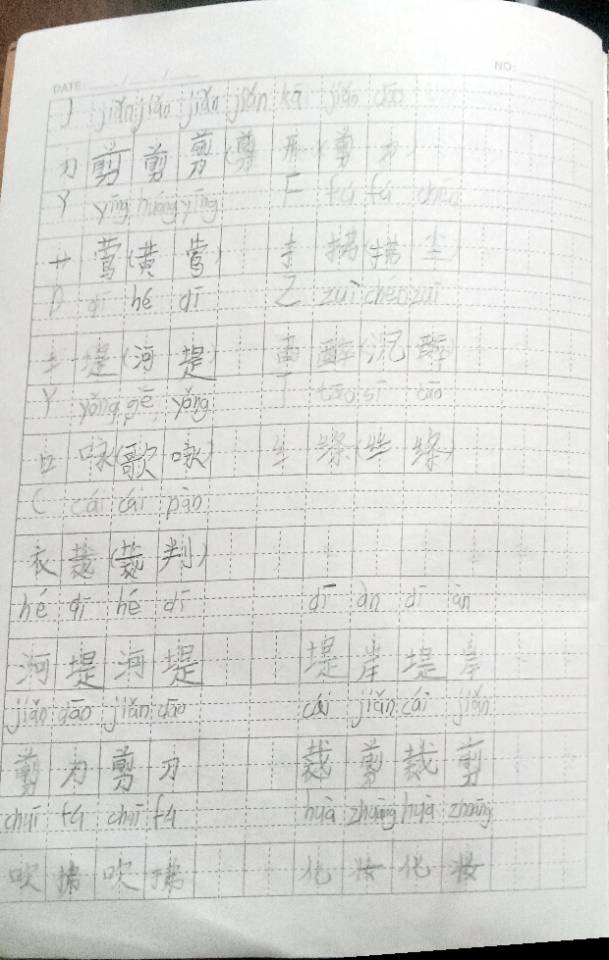 DATE: / / NO:
J jiǎn jiǎn jiǎn jiǎn kā jiǎn dāo
刀 剪 剪 剪 (剪 (剪 刀)
Y yīng huáng yīng F fú fú chén
艹 莺 (黄 莺) 扌 拂 (拂 尘)
D dī hé dī Z zuì chén zuì
土 堤 (河 堤) 酉 醉 (沉 醉)
Y yǒng gē yǒng T tāo sī tāo
口 咏 (歌 咏) 纟 绦 (丝 绦)
C cái cái pàn
衣 裁 (裁 判)
hé dī hé dī dī àn dī àn
河 堤 河 堤 堤 岸 堤 岸
jiǎn dāo jiǎn dāo cái jiǎn cái jiǎn
剪 刀 剪 刀 裁 剪 裁 剪
chuī fú chuī fú huà zhuāng huà zhuāng
吹 拂 吹 拂 化 妆 化 妆